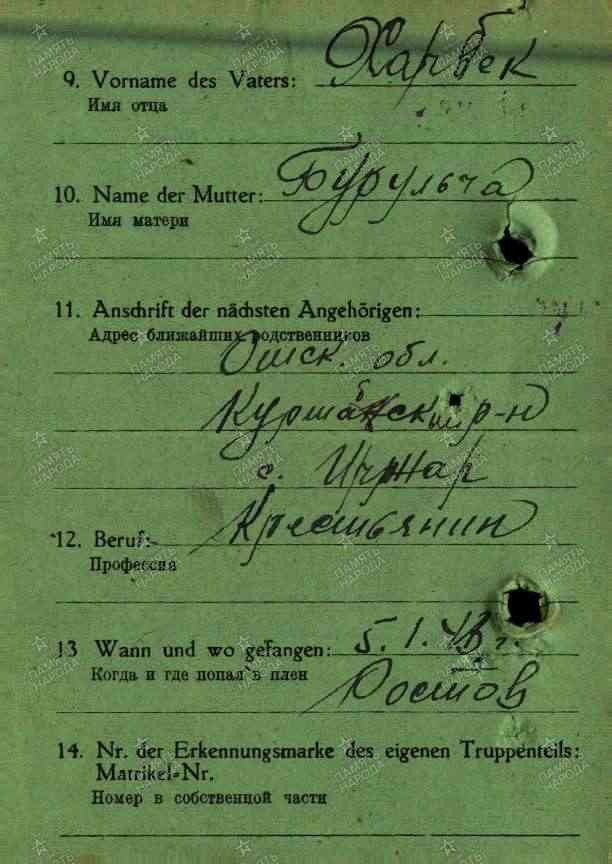 9. Vorname des Vaters: Харбек
Имя отца
10. Name der Mutter: Бурульча
Имя матери
11. Anschrift der nächsten Angehörigen:
Адрес ближайших родственников
Ошск. обл.
р-н
с. Ичжар
12. Beruf: Крестьянин
Профессия
13 Wann und wo gefangen: 5. 1. г.
Когда и где попал в плен
Ростов
14. Nr. der Erkennungsmarke des eigenen Truppenteils:
Matrikel-Nr.
Номер в собственной части
ПАМЯТЬ НАРОДА